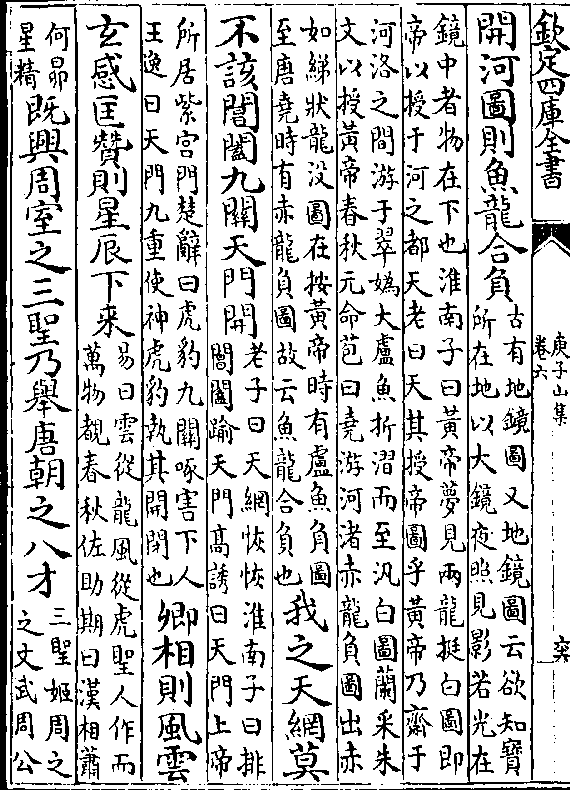 欽定四庫全書
庾子山集
卷六
開河圖則魚龍合負
古有地鏡圖又地鏡圖云欲知寶
所在地以大鏡夜照見影若光在
鏡中者物在下也淮南子曰黃帝夢見兩龍挺白圖即
帝以授于河之都天老曰天其授帝圖乎黃帝乃齋于
河洛之間游于翠媯大盧魚折溜而至汎白圖蘭采朱
文以授黃帝春秋元命苞曰堯游河渚赤龍負圖出赤
如綈狀龍没圖在按黃帝時有盧魚負圖
至唐堯時有赤龍負圖故云魚龍合負也
我之天網莫
不該閶闔九關天門開
老子曰天網恢恢淮南子曰排
閶闔踰天門高誘曰天門上帝
所居紫宮門楚辭曰虎豹九關啄害下人
王逸曰天門九重使神虎豹執其開閉也
卿相則風雲
玄感匡贊則星辰下来
易曰雲從龍風從虎聖人作而
萬物覩春秋佐助期曰漢相蕭
何昴
星精
既興周室之三聖乃舉唐朝之八才
三聖姬周之
之文武周公